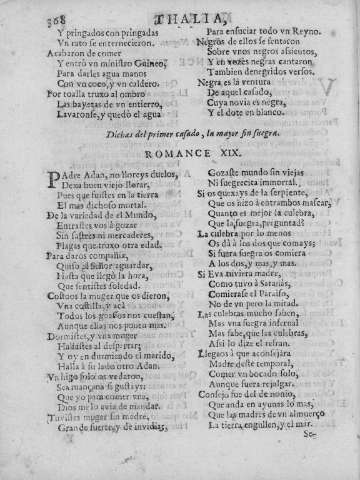 368 THALIA,
Y pringados con pringadas
Vn rato se enternecieron.
Acabaron de comer
Y entrò vn ministro Guineo,
Para darles agua manos
Con vn coco, y vn caldero.
Por toalla truxo al ombro
Las bayetas de vn entierro,
Lavaronse, y quedò el agua
Para ensuciar todo vn Reyno.
Negros de ellos se sentaron
Sobre vnos negros assientos,
Y en vozes negras cantaron
Tambien denegridos versos.
Negra es la ventura
De aquel casado,
Cuya novia es negra,
Y el dote en blanco.
Dichas del primer casado, la mayor sin suegra.
ROMANCE XIX.
PAdre Adan, no lloreys duelos,
Dexa buen viejo llorar,
Pues que fuistes en la tierra
El mas dichoso mortal.
De la variedad de el Mundo,
Entrastes vos à gozar
Sin sastres ni mercaderes,
Plagas que truxo otra edad.
Para daros compañia,
Quiso el Señor aguardar,
Hasta que llegò la hora,
Que sentistes soledad.
Costoos la muger que os dieron,
Vna costilla, y acà
Todos los guessos nos cuestan,
Aunque ellas nos ponen mas.
Dormistes, y vna muger
Hallastes al despertar;
Y oy en durmiendo el marido,
Halla à su lado otro Adan.
Vn higo solo os vedaron,
Sea mançana si gustays;
Que yo para comer vna,
Dios me lo avia de mandar.
Tuvistes muger sin madre,
Grande suerte, y de invidiar,
Gozaste mundo sin viejas
Ni suegrecita immortal.
Si os quexays de la serpiente,
Que os hizo à entrambos mascar,
Quanto es mejor la culebra,
Que la suegra, preguntad?
La culebra por lo menos
Os dà à los dos que comays;
Si fuera suegra os comiera
A los dos, y mas, y mas.
Si Eva tuviera madre,
Como tuvo à Satanàs,
Comierase el Paraiso,
No de vn pero la mitad.
Las culebras mucho saben,
Mas vna suegra infernal
Mas sabe, que las culebras,
Assi lo dize el refran.
Llegaos à que aconsejàra
Madre deste temporal,
Comer vn bocado solo,
Aunque fuera rejalgar.
Consejo fue del demonio,
Que anda en ayunas lo mas,
Que las madres de vn almuerço
La tierra engullen, y el mar.
So-